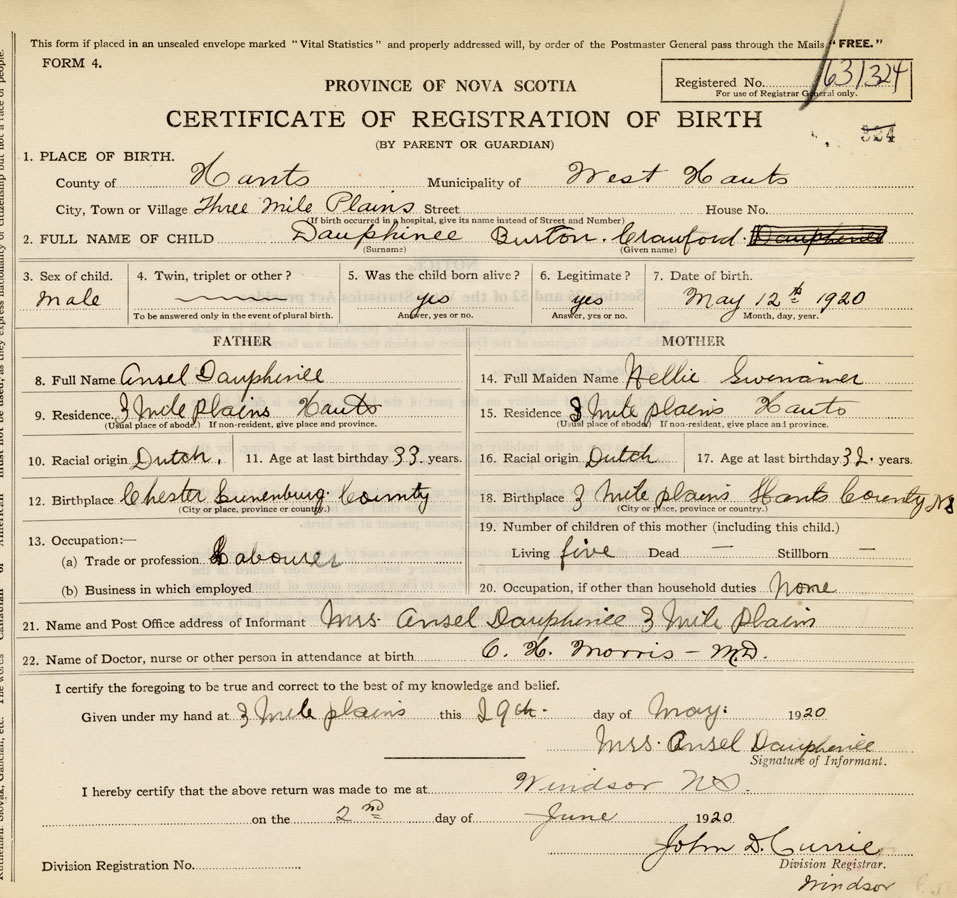 This form if placed in an unsealed envelope marked "Vital Statistics" and properly addressed will, by order of the Postmaster General pass through the Mails "FREE."
FORM 4.
PROVINCE OF NOVA SCOTIA
Registered No. 631324
For use of Registrar General only.
CERTIFICATE OF REGISTRATION OF BIRTH
(BY PARENT OR GUARDIAN)
1. PLACE OF BIRTH.
County of Hants Municipality of West Hants
City, Town or Village Three Mile Plains Street House No.
(If birth occurred in a hospital, give its name instead of Street and Number)
2. FULL NAME OF CHILD Dauphinee Burton. Crawford. Dauphinee
(Surname) (Given name)
3. Sex of child. 4. Twin, triplet or other? 5. Was the child born alive? 6. Legitimate? 7. Date of birth.
Male yes yes May 12th 1920
To be answered only in the event of plural birth. Answer, yes or no. Answer, yes or no. Month, day, year.
FATHER MOTHER
8. Full Name Ansel Dauphinee 14. Full Maiden Name Nellie
9. Residence. 3 Mile plains Hants 15. Residence 3 Mile plains Hants
(Usual place of abode.) If non-resident, give place and province. (Usual place of abode) If non-resident, give place and province.
10. Racial origin Dutch. 11. Age at last birthday 33. years. 16. Racial origin Dutch 17. Age at last birthday 32. years.
12. Birthplace Chester Lunenburg. County 18. Birthplace 3 Mile plains Hants County NS
(City or place, province or country.) (City or place, province or country.)
13. Occupation:— 19. Number of children of this mother (including this child.)
(a) Trade or profession Labourer Living five Dead — Stillborn —
(b) Business in which employed 20. Occupation, if other than household duties None
21. Name and Post Office address of Informant Mrs. Ansel Dauphinee 3 Mile Plains
22. Name of Doctor, nurse or other person in attendance at birth C. H. Morris - M.D.
I certify the foregoing to be true and correct to the best of my knowledge and belief.
Given under my hand at 3 Mile plains this 29th. day of May. 1920
Mrs. Ansel Dauphinee
Signature of Informant.
I hereby certify that the above return was made to me at Windsor NS.
on the 2nd day of June 1920
John D. Currie
Division Registration No. Division Registrar.
Windsor